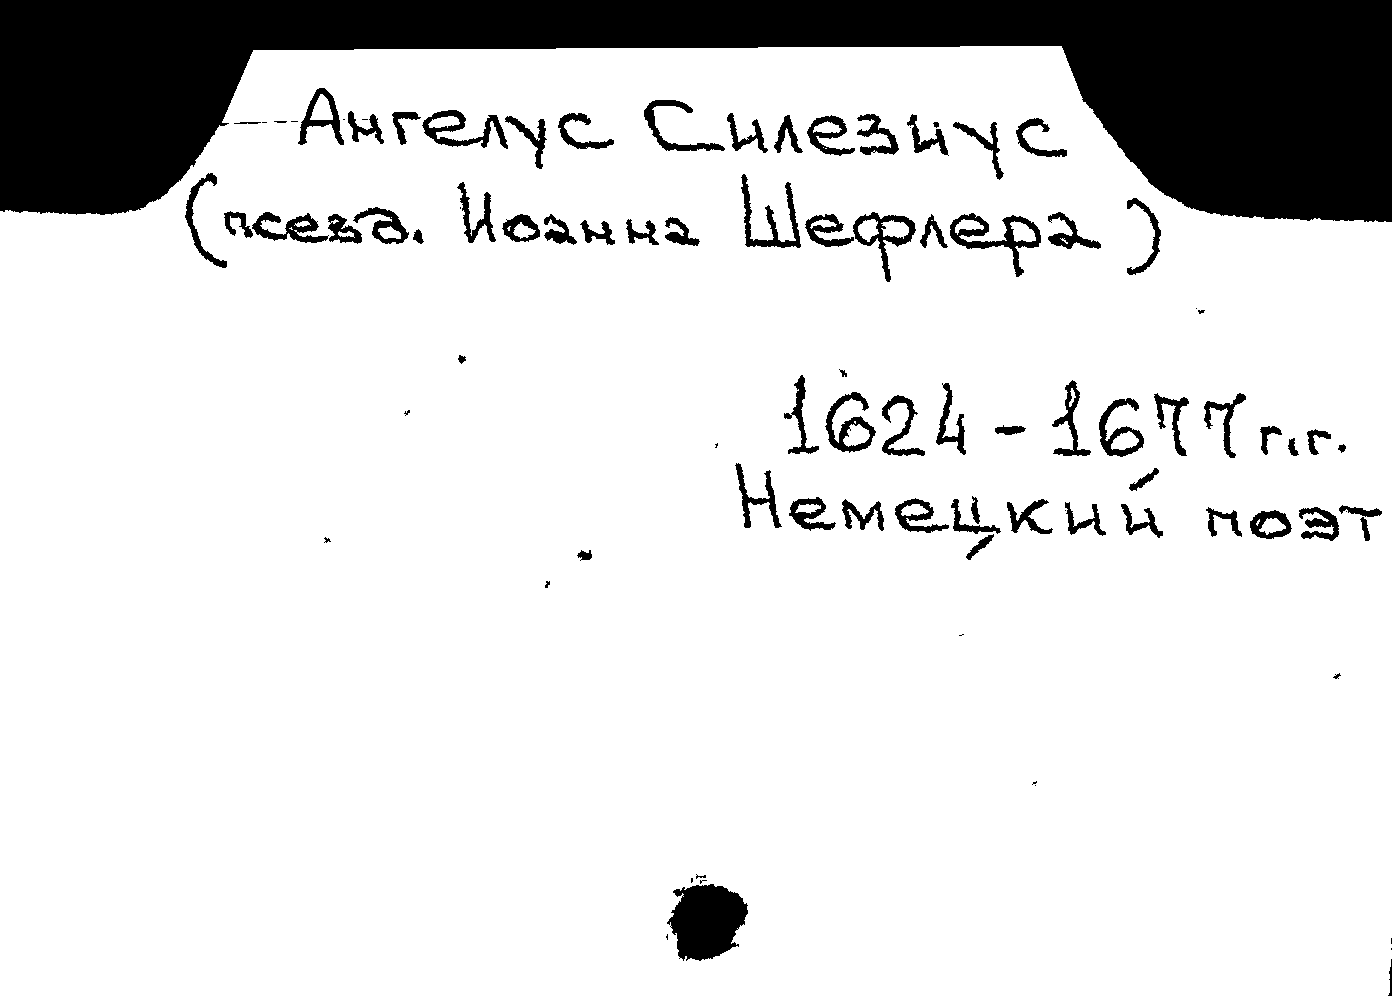 Ангелус Силезиус
(псевд. Иоанна Шефлера)
1624-1677 г.г.
Немецкий поэт